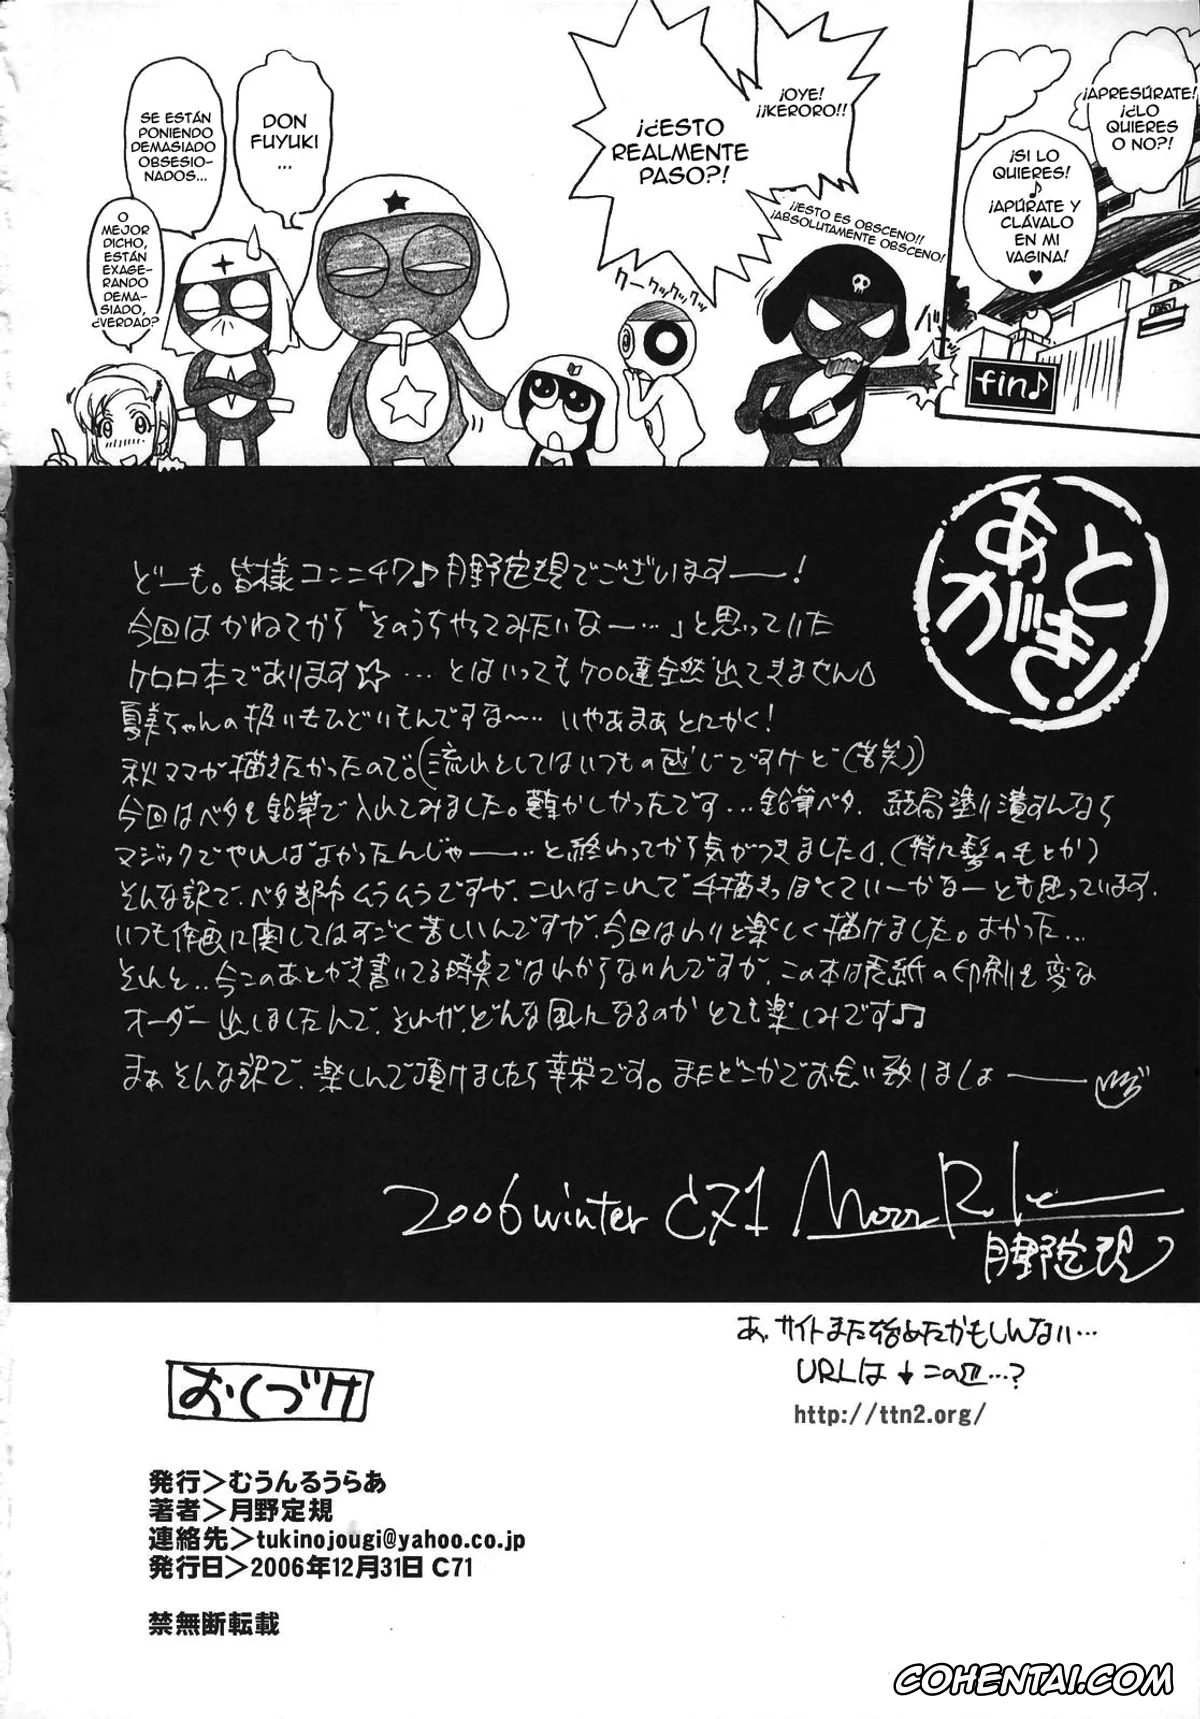 fin♪
¡OYE!
¡¡KERORO!!
¡¿ESTO
REALMENTE
PASO?!
¡¡ESTO ES OBSCENO!!
¡ABSOLUTAMENTE OBSCENO!
クークックックッ
DON
FUYUKI
...
SE ESTÁN
PONIENDO
DEMASIADO
OBSESIO-
NADOS...
O
MEJOR
DICHO,
ESTÁN
EXAGE-
RANDO
DEMA-
SIADO,
¿VERDAD?
あとがき!
どーも。皆様コンニチワ♪月野定規でございますーー!
今回はかねてから「そのうちやってみたいなー…」と思っていた
ケロロ本であります☆…とはいってもケロロ達全然出てきません
夏美ちゃんの扱いもひどいもんですな〜… いやあまあとにかく!
秋ママが描きたかったので。(流れとしてはいつもの感じですけど(苦笑))
今回はベタを鉛筆で入れてみました。難かしかったです…鉛筆ベタ。結局塗り潰すんなら
マジックでやればよかったんじゃーー…と終わってから気がつきました。(特に髪のもとか)
そんな訳で、ベタ部分ムラムラですが、これはこれで手描きっぽくていーかなーとも思っています。
いつも作画に関してはすごく苦しいんですが、今回はわりと楽しく描けました。よかった…
それと‥今このあとがき書いてる時点ではわからないんですが、この本は表紙の印刷を変な
オーダー出しましたんで、それが、どんな風になるのかとても楽しみです♪
まぁそんな訳で、楽しんで頂けましたら幸栄です。またどこかでお会い致しましょーー
2006 winter C71 Moon Rule
月野定規
あ、サイトまた始めたかもしんない…
URLは↓この辺…?
http://ttn2.org/
おくづけ
発行＞むうんるうらあ
著者＞月野定規
連絡先＞tukinojougi@yahoo.co.jp
発行日＞2006年12月31日 C71
禁無断転載
COHENTAI.COM